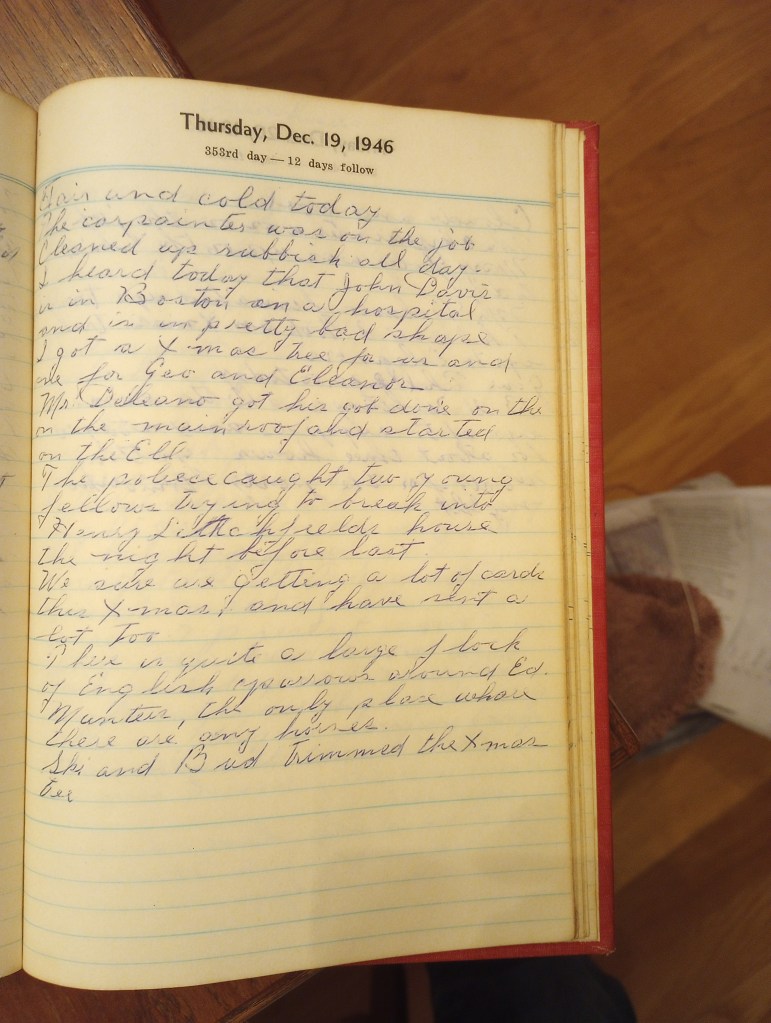 Thursday, Dec. 19, 1946
353rd day — 12 days follow
Fair and cold today
The carpainter was on the job
Cleaned up rubbish all day
I heard today that John Davis
is in Boston in a hospital
and is in pretty bad shape
I got a X-mas tree for us and
one for Geo and Eleanor
Mr Deleano got his gob done on the
on the main roof and started
on the Ell
The police caught two young
fellows trying to break into
Henry Litchfields house
the night before last.
We sure are getting a lot of cards
this X-mas, and have sent a
lot too
Thee is quite a large flock
of English sparrows around Ed.
the only place whare
there are any horses.
Ski and Bud trimmed the Xmas
tee